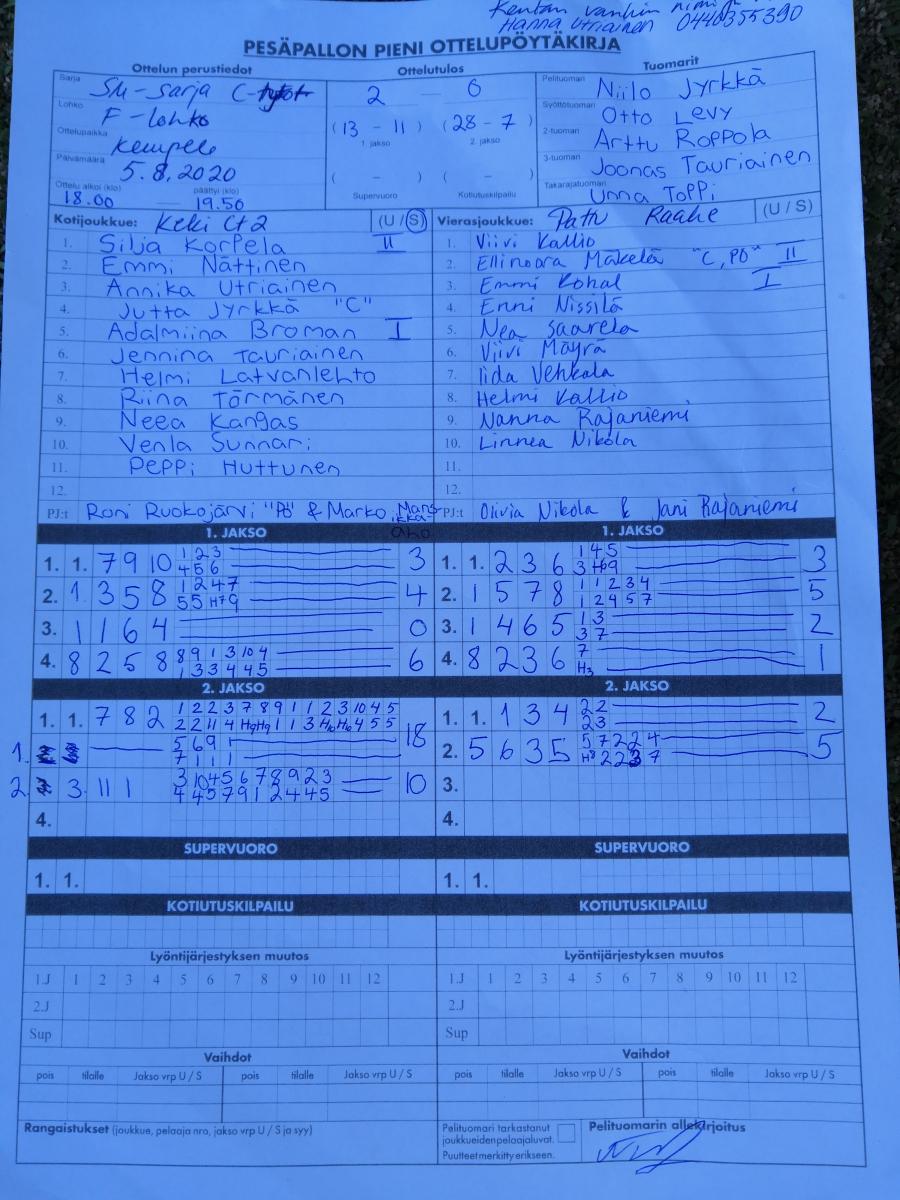 Kentän vanhin nimi
Hanna Utriainen 0440355390
PESÄPALLON PIENI OTTELUPÖYTÄKIRJA
Ottelun perustiedot
Sarja SM-sarja C-tytöt
Lohko F-lohko
Ottelupaikka Kempele
Päivämäärä 5.8.2020
Ottelu alkoi (klo) päättyi (klo)
18.00 — 19.50
Ottelutulos
2 — 0
(13 - 11) (28 - 7)
1. jakso 2. jakso
( - ) ( - )
Supervuoro Kotiutuskilpailu
Tuomarit
Pelituomari Niilo Jyrkkä
Syöttötuomari Otto Levy
2-tuomari Arttu Roppola
3-tuomari Joonas Tauriainen
Takarajatuomari Unna Toppi
Kotijoukkue: Keki Ct2 (U / S)
1. Silja Korpela II
2. Emmi Nättinen
3. Annika Utriainen
4. Jutta Jyrkkä "C"
5. Adalmiina Broman I
6. Jennina Tauriainen
7. Helmi Latvanlehto
8. Riina Törmänen
9. Neea Kangas
10. Venla Sunnari
11. Peppi Huttunen
12.
PJ:t Roni Ruokojärvi "PÖ" & Marko Mansikka-aho
Vierasjoukkue: Patu Raahe (U / S)
1. Viivi Kallio
2. Ellinoora Mäkelä "C, PÖ" II
3. Emmi Kohal I
4. Enni Nissilä
5. Nea Saarela
6. Viivi Mäyrä
7. Iida Vehkala
8. Helmi Kallio
9. Nanna Rajaniemi
10. Linnea Nikola
11.
12.
PJ:t Olivia Nikola & Jani Rajaniemi
1. JAKSO
1. 1. 7 9 10 1 2 3 3
4 5 6
2. 1 3 5 8 1 2 4 7 4
5 5 H7 9
3. 1 1 6 4 0
4. 8 2 5 8 8 9 1 3 10 4 6
1 3 3 4 4 5
1. JAKSO
1. 1. 2 3 6 1 4 5 3
3 H9
2. 1 5 7 8 1 1 2 3 4 5
1 2 4 5 7
3. 1 4 6 5 1 3 2
3 7
4. 8 2 3 6 7 1
H3
2. JAKSO
1. 1. 7 8 2 1 2 2 3 7 8 9 1 1 2 3 10 4 5
2 2 11 4 H9 H9 1 1 3 H10 H10 4 5 5
1. 5 6 9 1 18
7 1 1 1
2. 3. 11 1 3 10 4 5 6 7 8 9 2 3 10
4 4 5 7 9 1 2 4 4 5
4.
2. JAKSO
1. 1. 1 3 4 2 2 2
2 3
2. 5 6 3 5 5 7 2 2 4 5
H8 2 2 3 7
3.
4.
SUPERVUORO
1. 1.
SUPERVUORO
1. 1.
KOTIUTUSKILPAILU
KOTIUTUSKILPAILU
Lyöntijärjestyksen muutos
1.J 1 2 3 4 5 6 7 8 9 10 11 12
2.J
Sup
Lyöntijärjestyksen muutos
1.J 1 2 3 4 5 6 7 8 9 10 11 12
2.J
Sup
Vaihdot
pois tilalle Jakso vrp U / S pois tilalle Jakso vrp U / S
Vaihdot
pois tilalle Jakso vrp U / S pois tilalle Jakso vrp U / S
Rangaistukset (joukkue, pelaaja nro, jakso vrp U / S ja syy)
Pelituomari tarkastanut
joukkueiden pelaajaluvat.
Puutteet merkitty erikseen.
Pelituomarin allekirjoitus